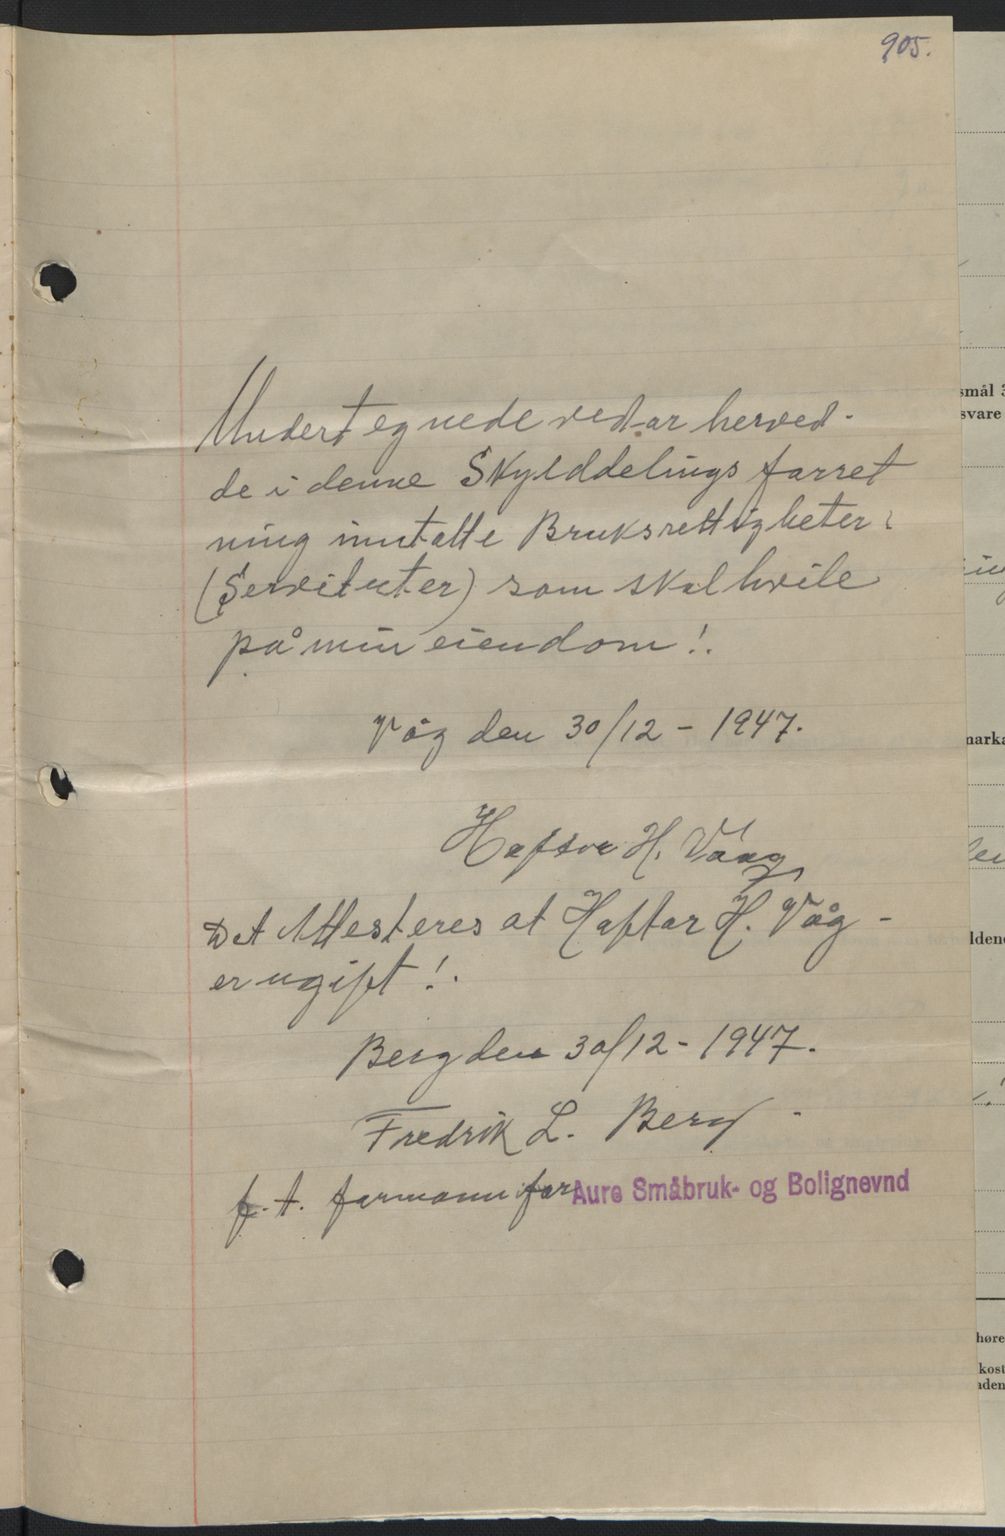 905.
Undertegnede vedtar herved-
de i denne Skylddelings forret
ning inntatte Bruksrettigheter:
(Serviteter) som skal hvile
på min eiendom!.
Våg den 30/12 - 1947.
H. Vaag
Det Attesteres at Haftor H. Våg -
er ugift!.
Berg den 30/12 - 1947.
Fredrik L. Berg -
f. t. formann for Aure Småbruk- og Bolignevnd
smål 3
svare
marka
ldene
høre
kost
aden